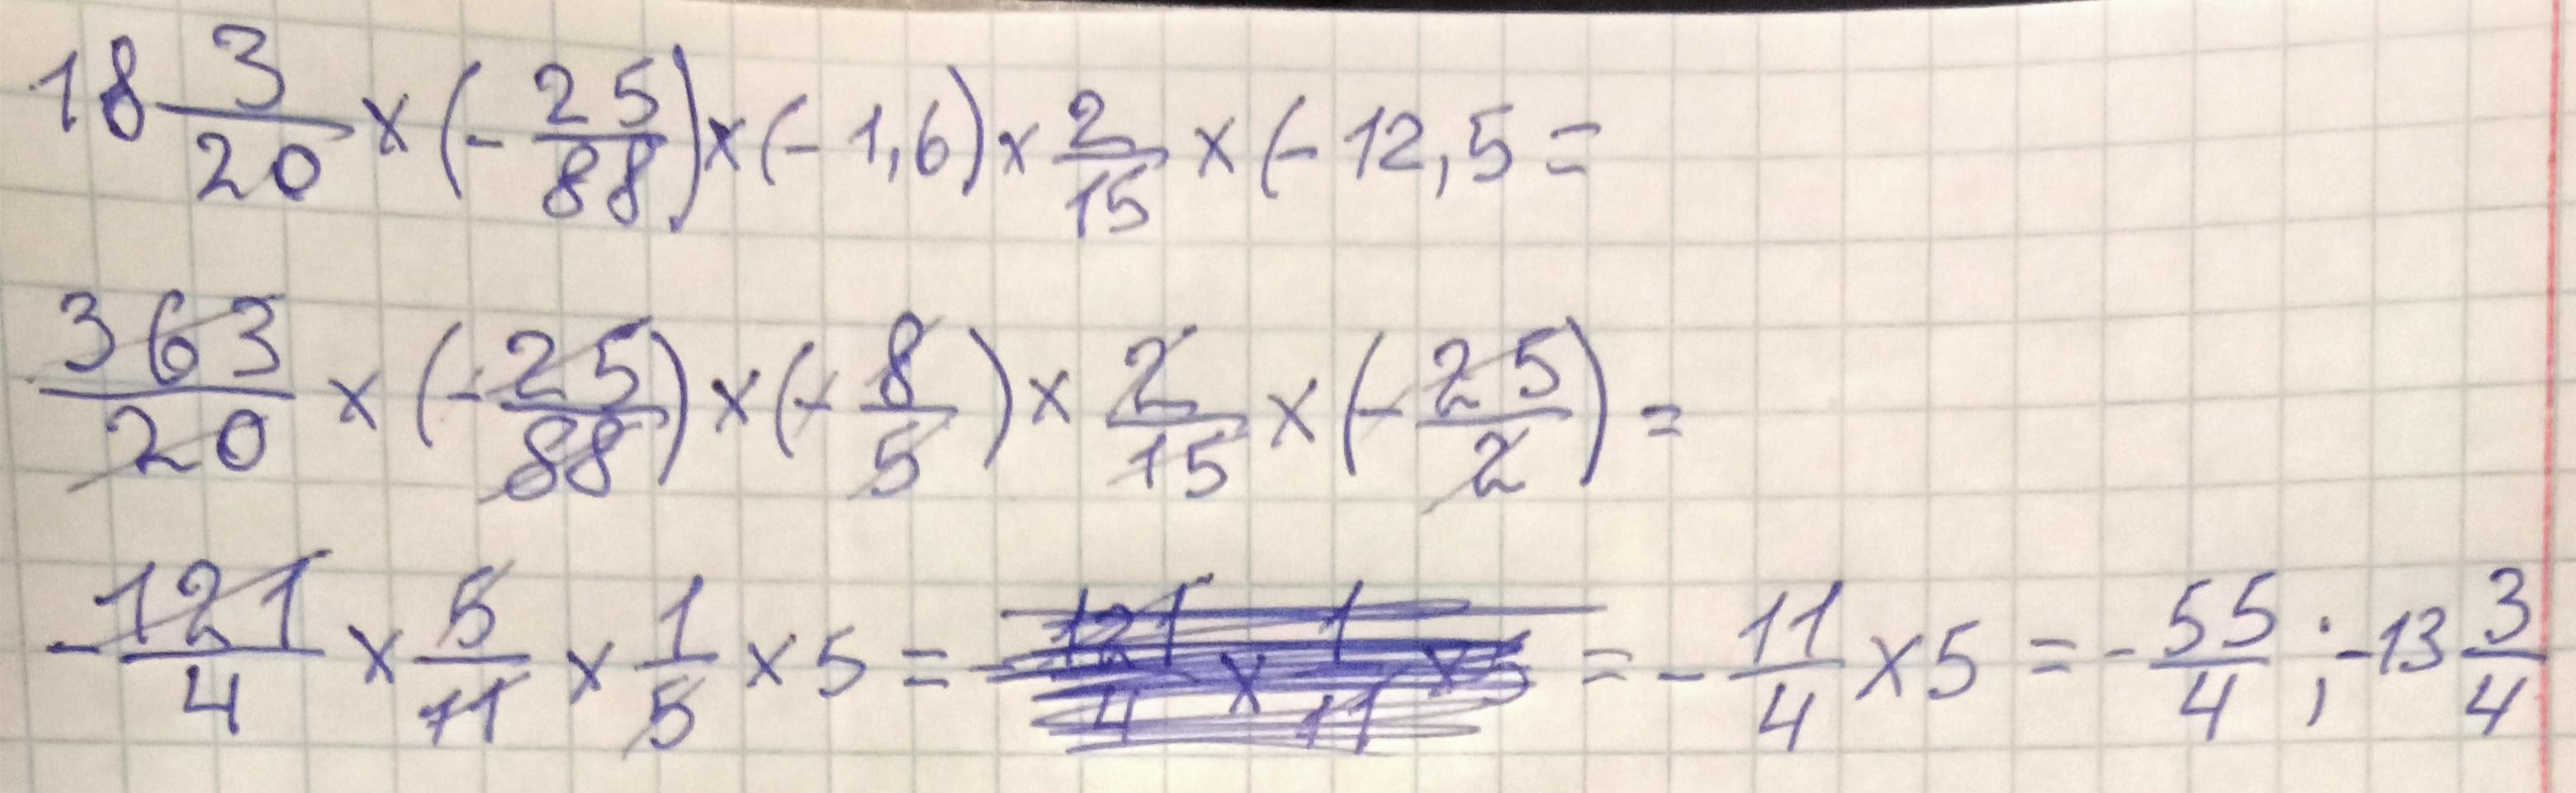 18 3/20 × (- 25/88) × (- 1,6) × 2/15 × (- 12,5 =
363/20 × (- 25/88) × (- 8/5) × 2/15 × (- 25/2) =
- 121/4 × 5/11 × 1/5 × 5 = - 121/4 × 1/11 × 5 = - 11/4 × 5 = - 55/4 ; - 13 3/4